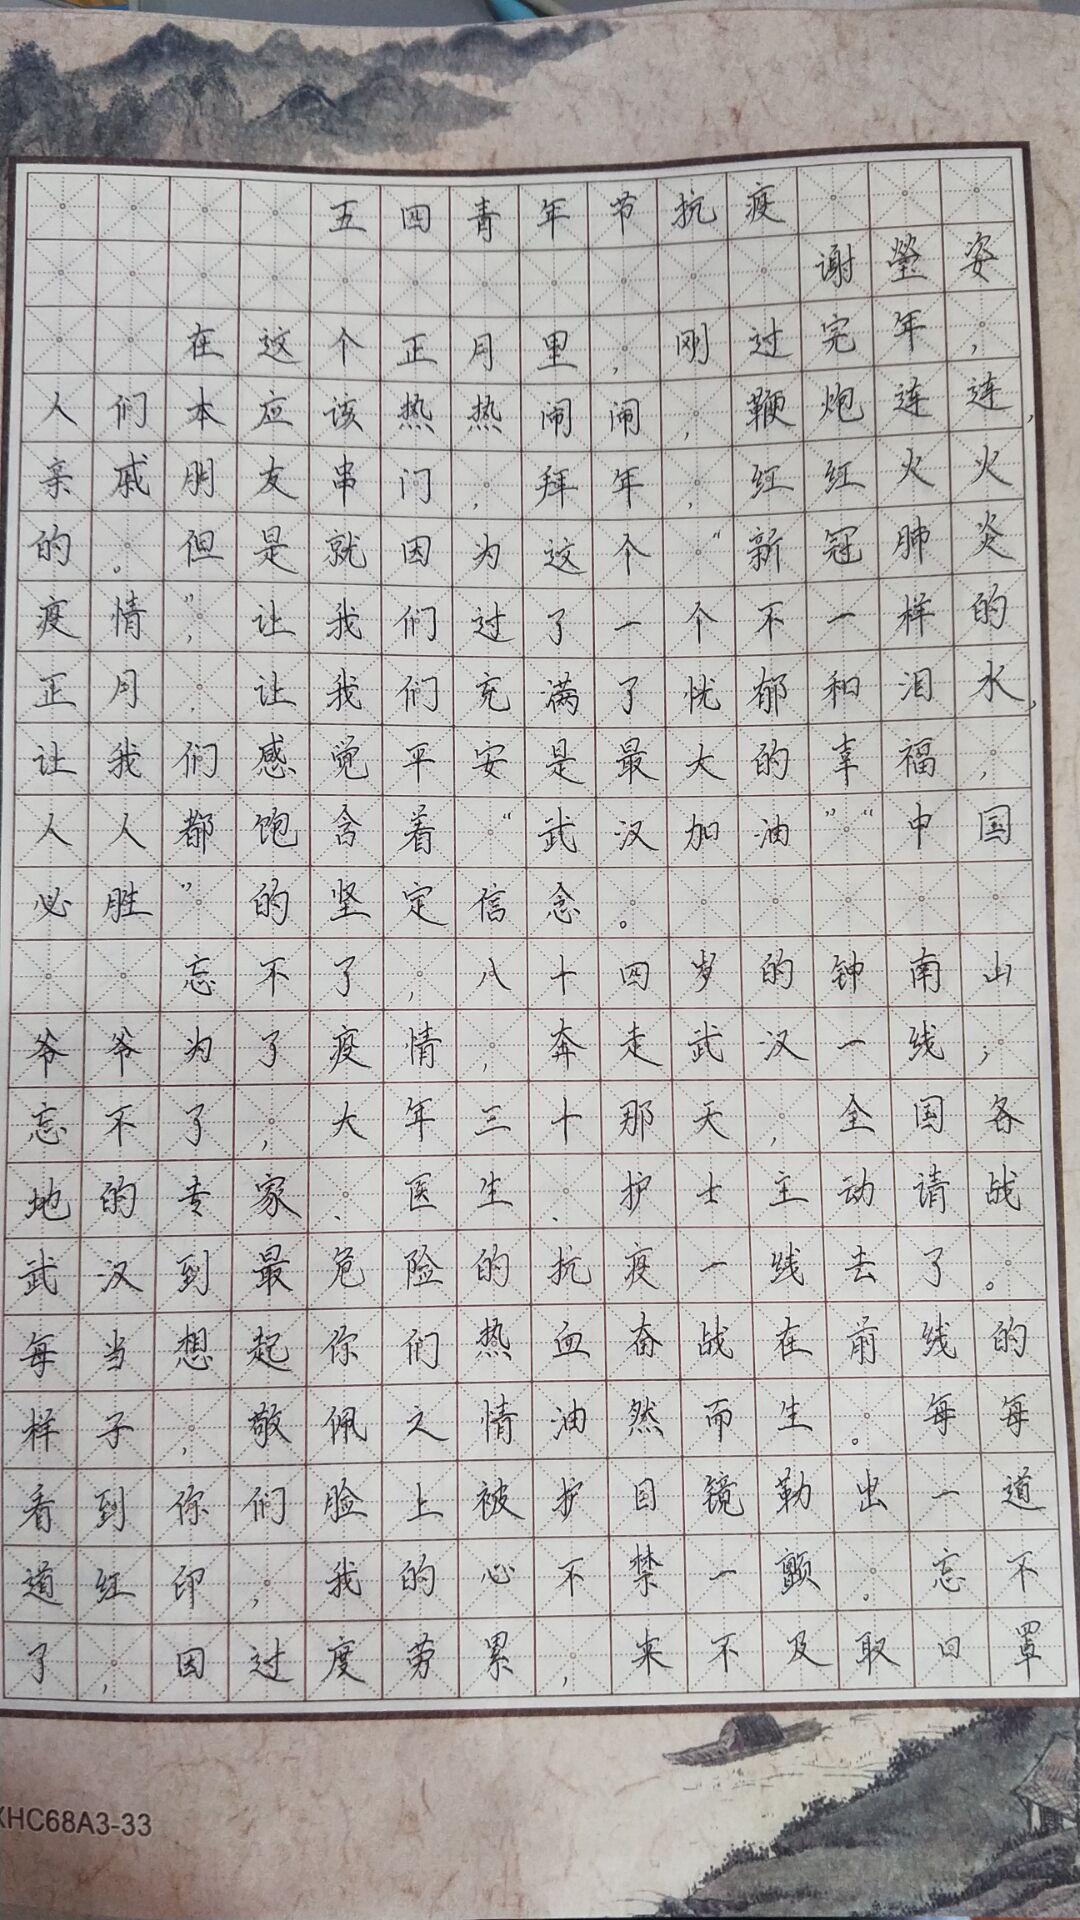 五四青年节抗疫
谢莹姿
在这个正月里，刚过完年，
人们本应该热热闹闹，鞭炮连连，
亲戚朋友串门，拜年，红红火火
的。但是就因为这个“新冠肺炎
疫情”，让我们过了一个不一样的
正月，让我们充满了忧郁和泪水，
让我们感觉平安是最大的幸福，
人人都饱含着“武汉加油”“中国
必胜”的坚定信念。
忘不了，八十四岁的钟南山
爷爷为了疫情，奔走武汉一线；
忘不了，大年三十那天，全国各
地的专家、医生、护士主动请战
武汉到最危险的抗疫一线去了。
每当想起你们热血奋战在前线的
样子，敬佩之情油然而生。每每
看到你们脸上被护目镜勒出一道
道红印，我的心不禁一颤。忘不
了，因过度劳累，来不及取口罩
XHC68A3-33